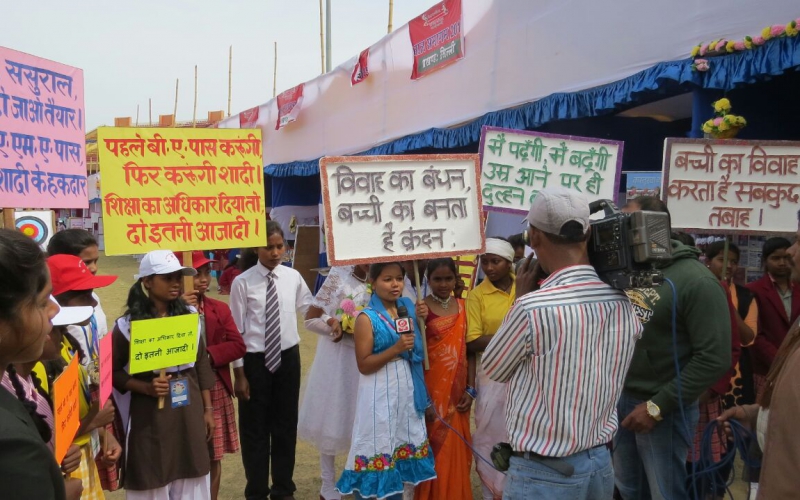 ससुराल,
जाओ तैयार।
एम.ए.पास
शादी के हकदार
पहले बी.ए.पास करूंगी
फिर करूंगी शादी।
शिक्षा का अधिकार दिया तो,
दो इतनी आजादी।
विवाह का बंधन,
बच्ची का बनता
है क्रंदन.
मैं पढूँगी, मैं बढूँगी
उम्र आने पर ही
दुल्हन
बच्ची का विवाह
करता है सबकुछ
तबाह।
शिक्षा का अधिकार दिया तो,
दो इतनी आजादी।